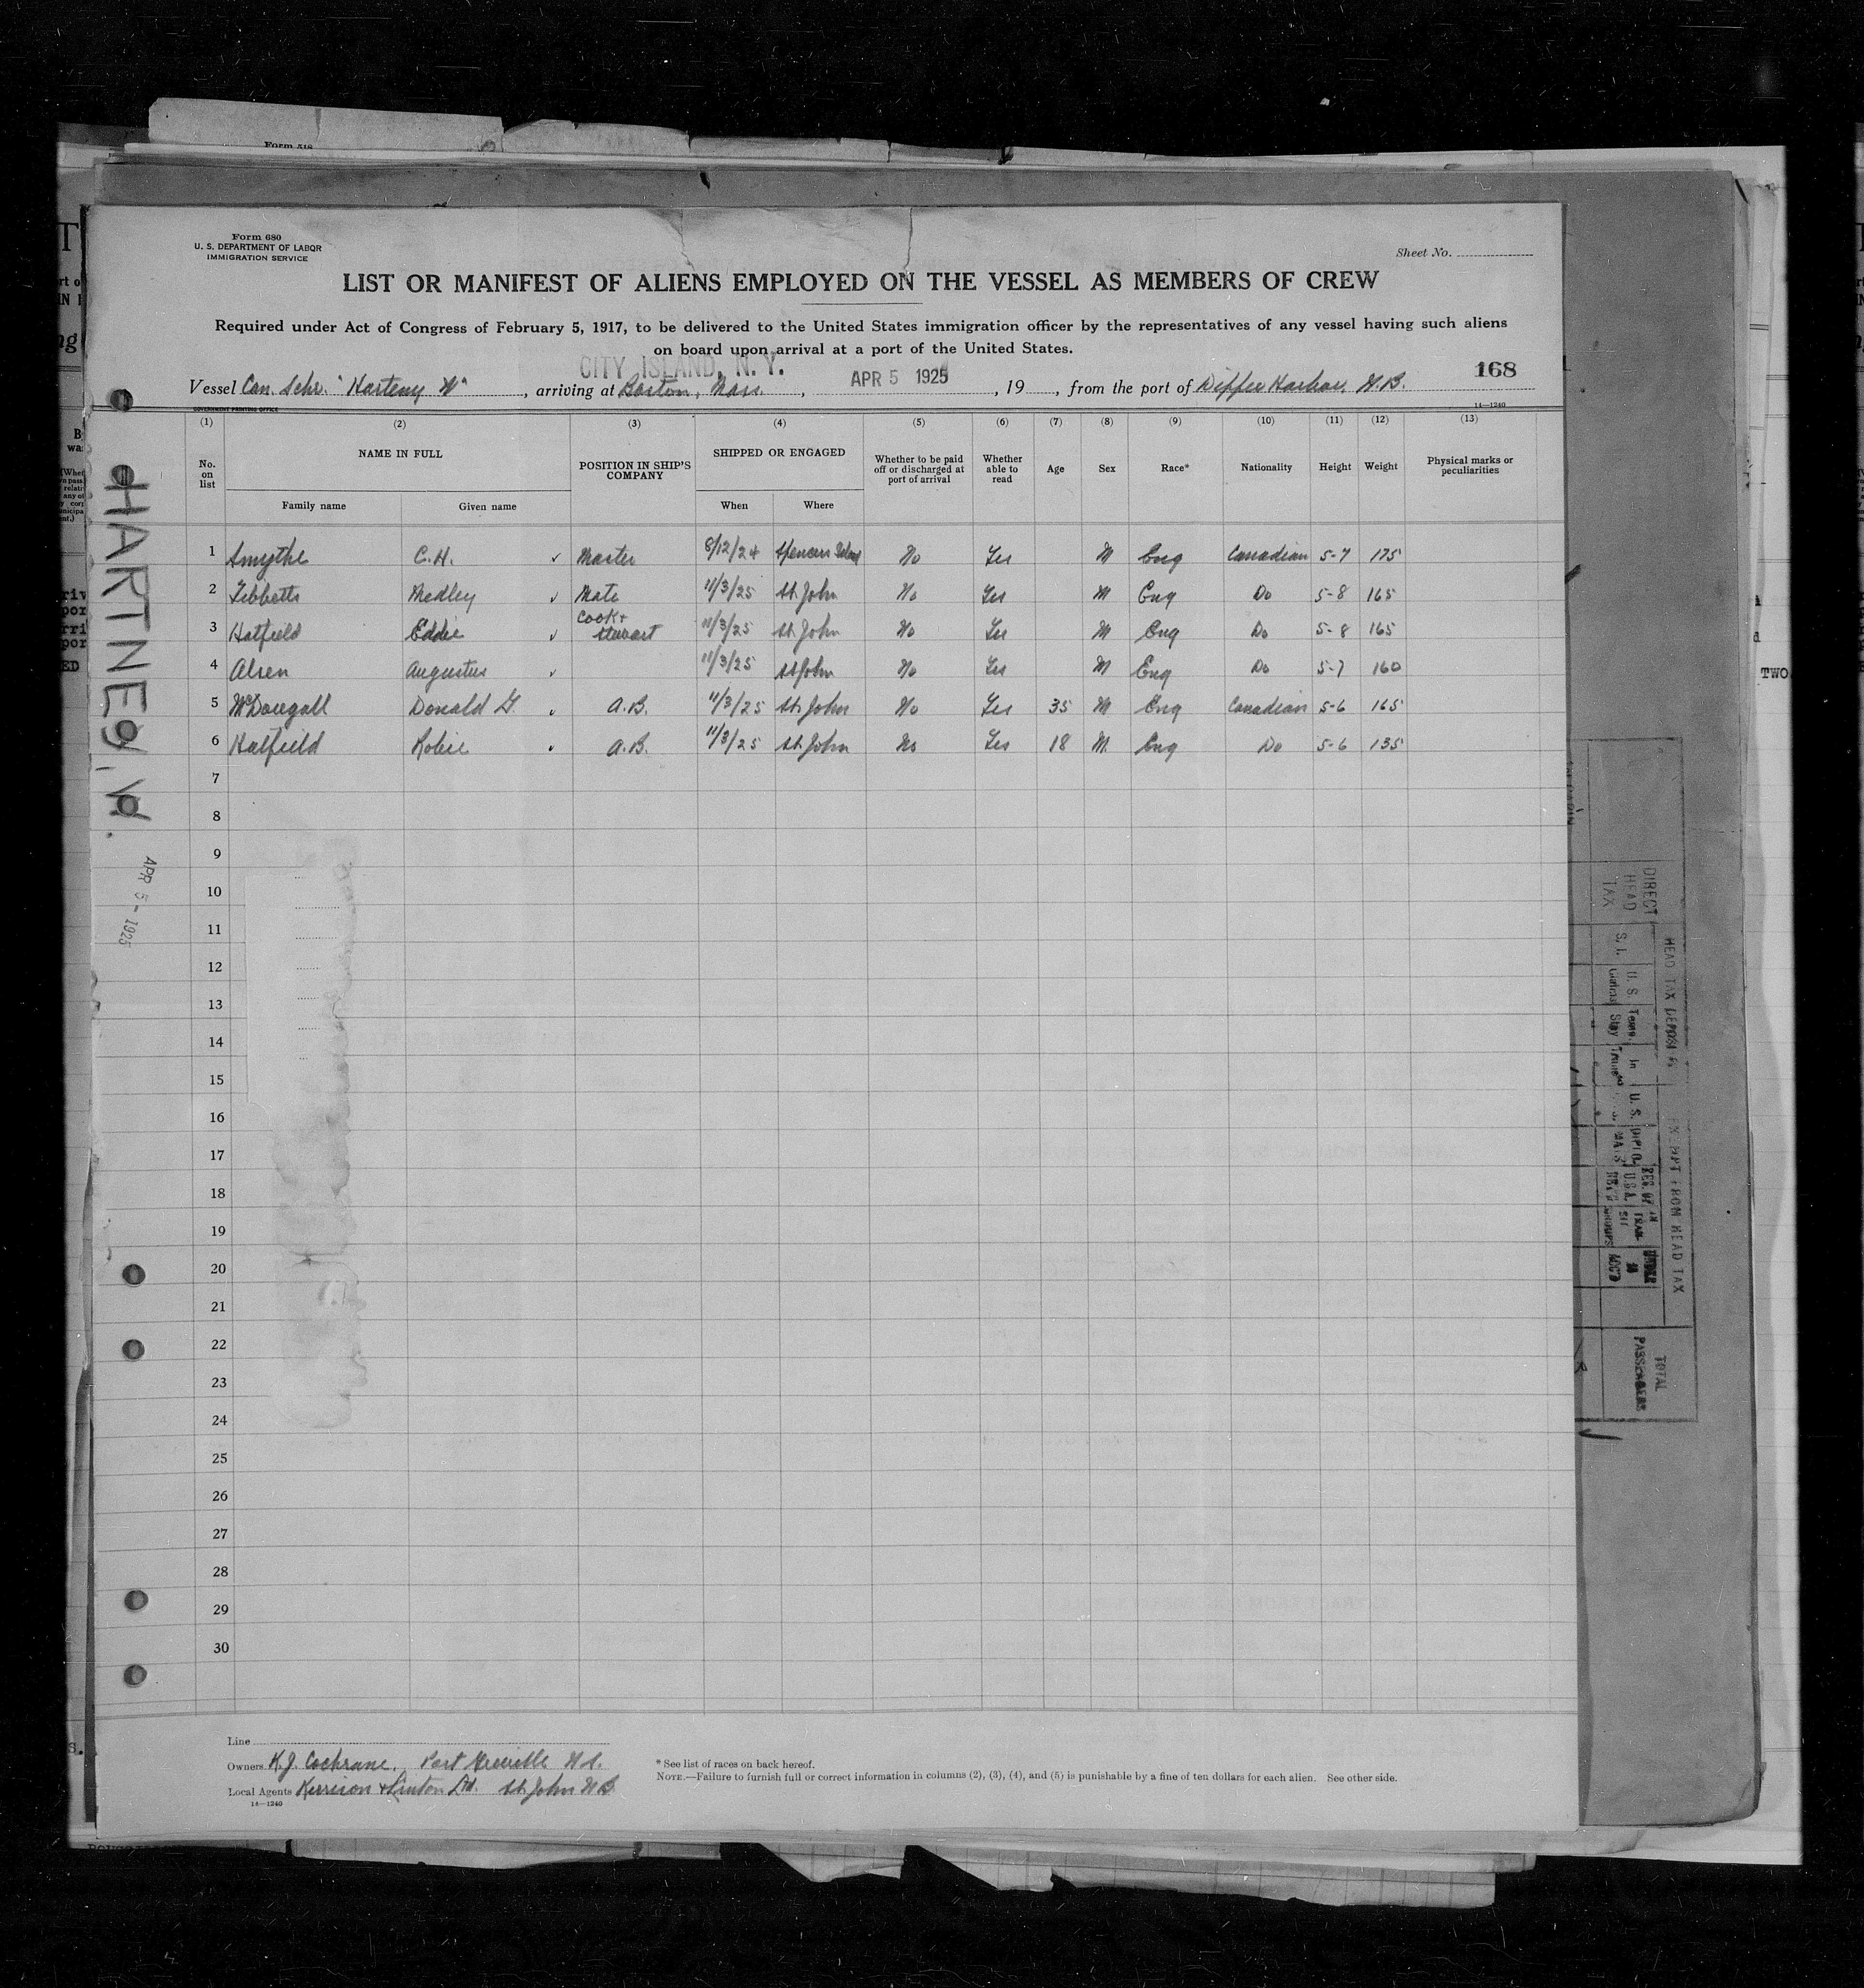 Form 518
Form 680
U. S. DEPARTMENT OF LABOR
IMMIGRATION SERVICE
Sheet No.
LIST OR MANIFEST OF ALIENS EMPLOYED ON THE VESSEL AS MEMBERS OF CREW
Required under Act of Congress of February 5, 1917, to be delivered to the United States immigration officer by the representatives of any vessel having such aliens
on board upon arrival at a port of the United States.
CITY ISLAND, N. Y.
168
Vessel Can. Schr. "Harteny W", arriving at Boston, Mass., APR 5 1925, 19, from the port of Dipper Harbor, N.B.
GOVERNMENT PRINTING OFFICE
14—1240
(1) (2) (3) (4) (5) (6) (7) (8) (9) (10) (11) (12) (13)
No. on list NAME IN FULL POSITION IN SHIP'S COMPANY SHIPPED OR ENGAGED Whether to be paid off or discharged at port of arrival Whether able to read Age Sex Race* Nationality Height Weight Physical marks or peculiarities
Family name Given name When Where
1 Smythe C.H. ✓ Master 8/12/24 Spencers Island No Yes M Eng Canadian 5-7 175
2 Tibbetts Medley ✓ Mate 11/3/25 St. John No Yes M Eng Do 5-8 165
3 Hatfield Eddie ✓ Cook + Stewart 11/3/25 St. John No Yes M Eng Do 5-8 165
4 Alsen Augustus ✓ 11/3/25 St John No Yes M Eng Do 5-7 160
5 McDougall Donald G. ✓ A.B. 11/3/25 St. John No Yes 35 M Eng Canadian 5-6 165
6 Hatfield Robie ✓ A.B. 11/3/25 St. John No Yes 18 M. Eng Do 5-6 135
7
8
9
10
11
12
13
14
15
16
17
18
19
20
21
22
23
24
25
26
27
28
29
30
HARTNEY, W.
APR 5 - 1925
Line
Owners K.J. Cochrane, Port Greville N.S.
Local Agents Kerrison & Linton Ltd. St. John N B
14—1240
* See list of races on back hereof.
NOTE.—Failure to furnish full or correct information in columns (2), (3), (4), and (5) is punishable by a fine of ten dollars for each alien. See other side.
DIRECT HEAD TAX
HEAD TAX DEPOSIT
EXEMPT FROM HEAD TAX
TOTAL PASSENGERS
TWO